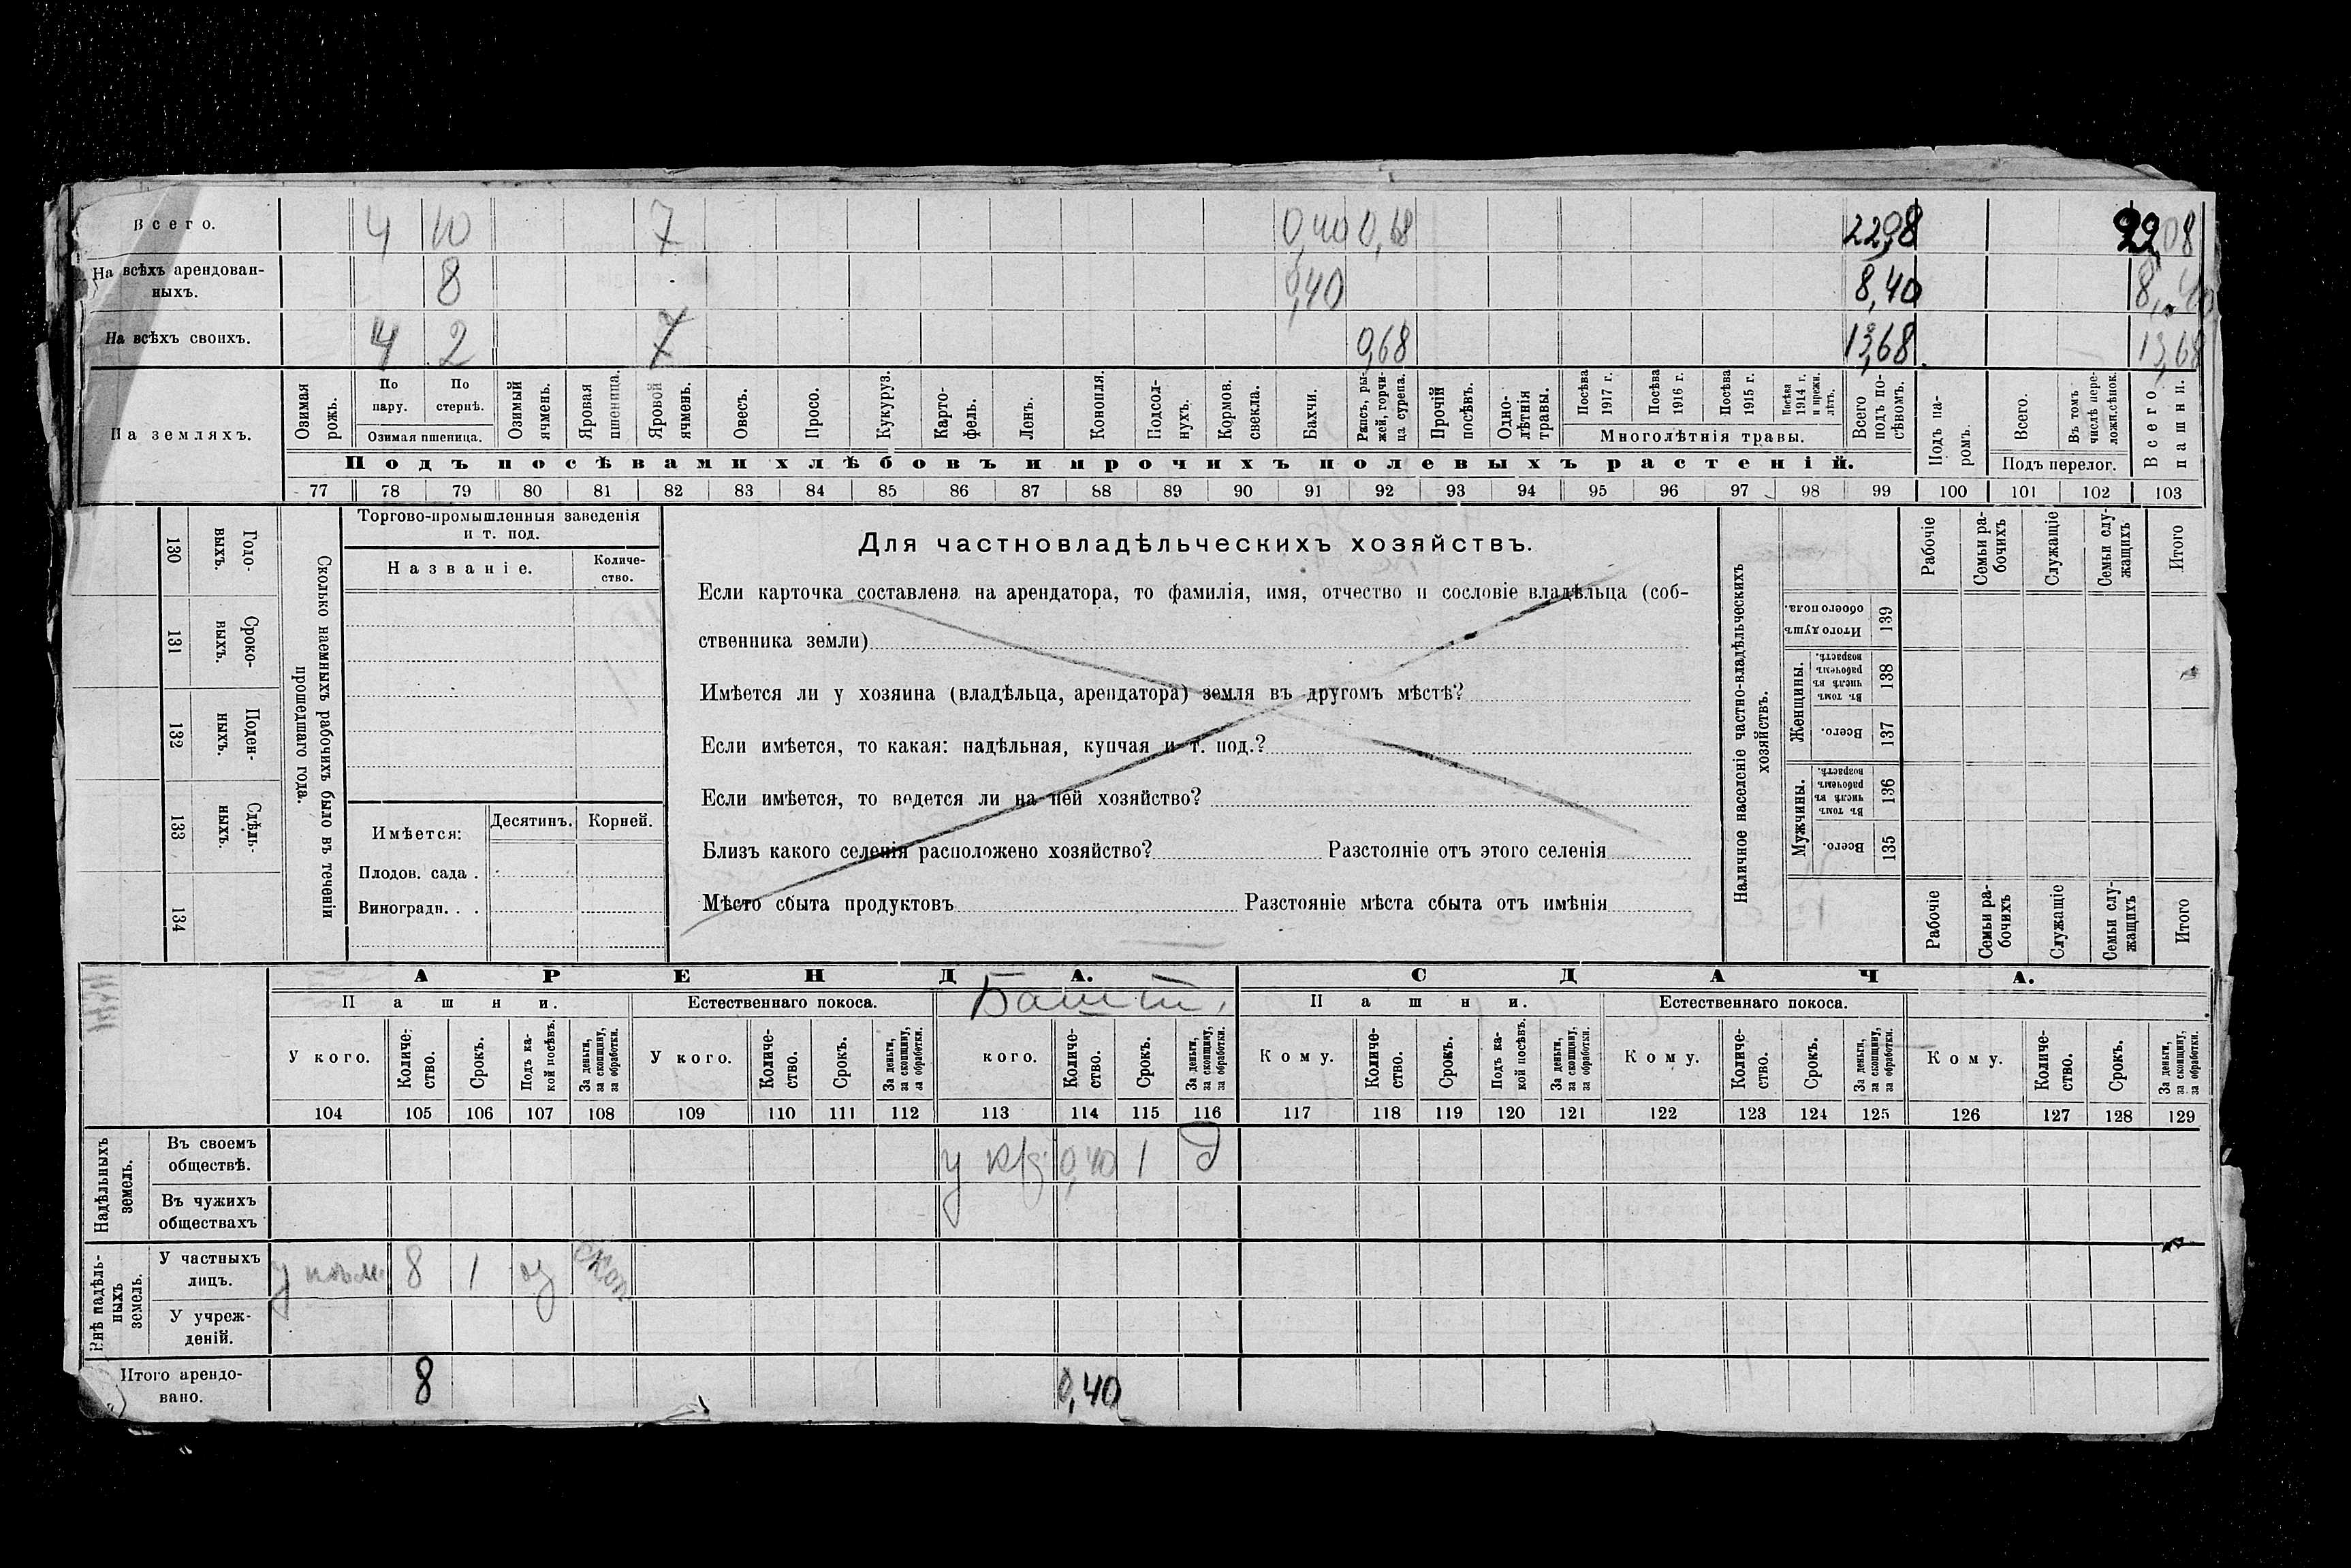 Всего. 4 10 7 0,40 0,68 22,08 22,08
На всѣхъ арендован-
ныхъ. 8 0,40 8,40 8,40
На всѣхъ своихъ. 4 2 7 0,68 13,68 13,68
На земляхъ.
Озимая рожь.
По пару.
По стернѣ.
Озимая пшеница.
Озимый ячмень.
Яровая пшеница.
Яровой ячмень.
Овесъ.
Просо.
Кукуруз.
Карто-
фель.
Ленъ.
Конопля.
Подсол-
нухъ.
Кормов. свекла.
Бахчи.
Рапсъ, ры-
жей, горчи-
ца сурепа.
Прочій посѣвъ.
Одно-
лѣтнія травы.
Посѣва 1917 г.
Посѣва 1916 г.
Посѣва 1915 г.
Посѣва 1914 г. и прежн. лѣтъ.
Многолѣтнія травы.
Всего подъ по-
сѣвомъ.
Подъ па-
ромъ.
Всего.
Въ томъ числѣ пере-
ложн. сѣнок.
Подъ перелог.
Всего пашни.
Подъ посѣвами хлѣбовъ и прочихъ полевыхъ растеній.
77 78 79 80 81 82 83 84 85 86 87 88 89 90 91 92 93 94 95 96 97 98 99 100 101 102 103
130 Годо-
выхъ.
131 Сроко-
выхъ.
132 Поден-
ныхъ.
133 Сдѣль-
ныхъ.
134
Сколько наемныхъ рабочихъ было въ теченіи
прошедшаго года.
Торгово-промышленныя заведенія
и т. под.
Названіе.
Количе-
ство.
Имѣется:
Десятинъ. Корней.
Плодов. сада .
Виноградн. . .
Для частновладѣльческихъ хозяйствъ.
Если карточка составлена на арендатора, то фамилія, имя, отчество и сословіе владѣльца (соб-
ственника земли)
Имѣется ли у хозяина (владѣльца, арендатора) земля въ другомъ мѣстѣ?
Если имѣется, то какая: надѣльная, купчая и т. под.?
Если имѣется, то ведется ли на ней хозяйство?
Близъ какого селенія расположено хозяйство? Разстояніе отъ этого селенія
Мѣсто сбыта продуктовъ Разстояніе мѣста сбыта отъ имѣнія
Наличное населеніе частно-владѣльческихъ
хозяйствъ.
Рабочіе
Семьи ра-
бочихъ
Служащіе
Семьи слу-
жащихъ
Итого
Итого душъ
обоего пола.
139
Женщины.
Въ томъ числѣ въ рабочемъ возрастѣ.
138
Всего.
137
Мужчины.
Въ томъ числѣ въ рабочемъ возрастѣ.
136
Всего.
135
Рабочіе
Семьи ра-
бочихъ
Служащіе
Семьи слу-
жащихъ
Итого
АРЕНДА. СДАЧА.
Пашни. Естественнаго покоса. Пашни. Естественнаго покоса.
У кого.
Количе-
ство.
Срокъ.
Подъ ка-
кой посѣвъ.
За деньги,
за скопщину,
за обработки.
У кого.
Количе-
ство.
Срокъ.
За деньги,
за скопщину,
за обработки.
кого.
Количе-
ство.
Срокъ.
За деньги,
за скопщину,
за обработки.
Кому.
Количе-
ство.
Срокъ.
Подъ ка-
кой посѣвъ.
За деньги,
за скопщину,
за обработки.
Кому.
Количе-
ство.
Срокъ.
За деньги,
за скопщину,
за обработки.
Кому.
Количе-
ство.
Срокъ.
За деньги,
за скопщину,
за обработки.
104 105 106 107 108 109 110 111 112 113 114 115 116 117 118 119 120 121 122 123 124 125 126 127 128 129
Надѣльныхъ
земель.
Въ своемъ
обществѣ. у 0,40 1 д
Въ чужихъ
обществахъ
Внѣ надѣль-
ныхъ
земель.
У частныхъ
лицъ. у 8 1 оз скоп
У учреж-
деній.
Итого арендо-
вано. 8 0,40